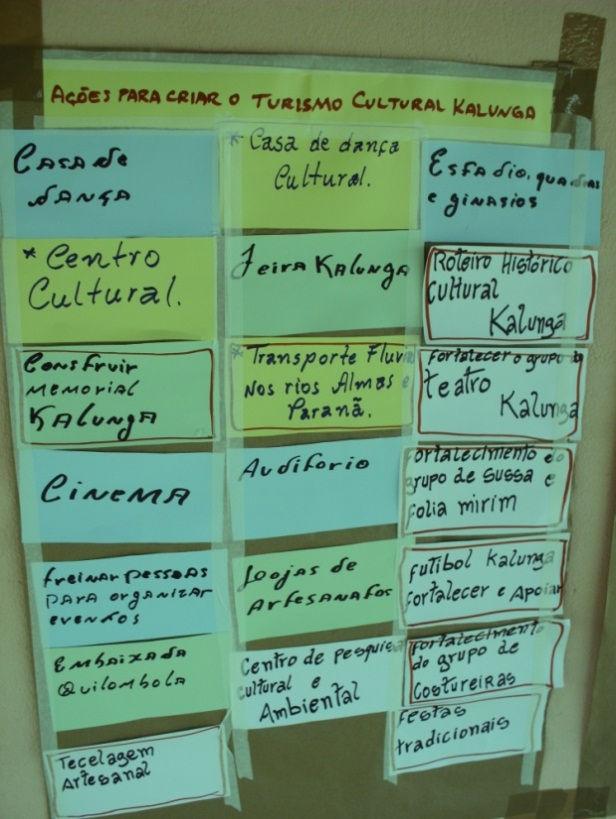 AÇÕES PARA CRIAR O TURISMO CULTURAL KALUNGA
CASA de
DANÇA
* Centro
Cultural.
Construir
MEMORIAL
KALUNGA
CINEMA
treinar pessoas
PARA organizar
eventos
EMBAIXADA
QUILOMBOLA
Tecelagem
Artesanal
* Casa de dança
Cultural.
Feira KALUNGA
* Transporte Fluvial
Nos rios Almas e
Paranã.
AUDITORIO
Loojas de
ARTESANATOS
Centro de pesquisa
cultural e
Ambiental
ESTADIO, quadras
e ginasios
Roteiro Histórico
Cultural
Kalunga
Fortalecer o grupo
teatro
Kalunga
Fortalecimento do
grupo de sussa e
folia mirim
Futibol Kalunga
Fortalecer e Apoiar
Fortalecimento
do grupo de
Costureiras
Festas
tradicionais